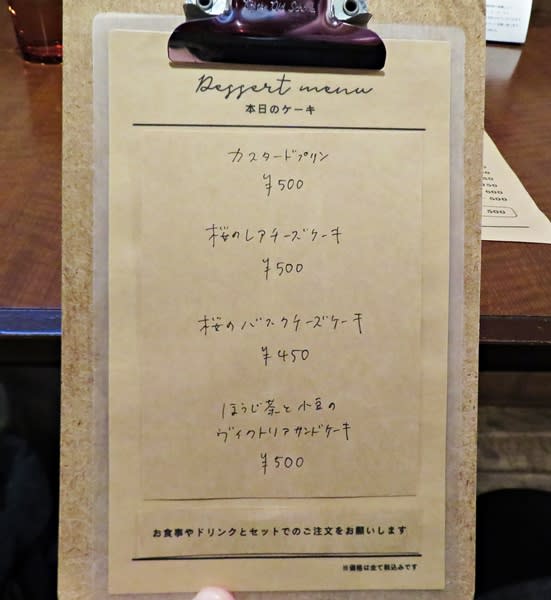 Dessert menu
本日のケーキ
カスタードプリン
¥500
桜のレアチーズケーキ
¥500
桜のバスクチーズケーキ
¥450
ほうじ茶と小豆の
ヴィクトリアサンドケーキ
¥500
お食事やドリンクとセットでのご注文をお願いします
※価格は全て税込みです
500
500